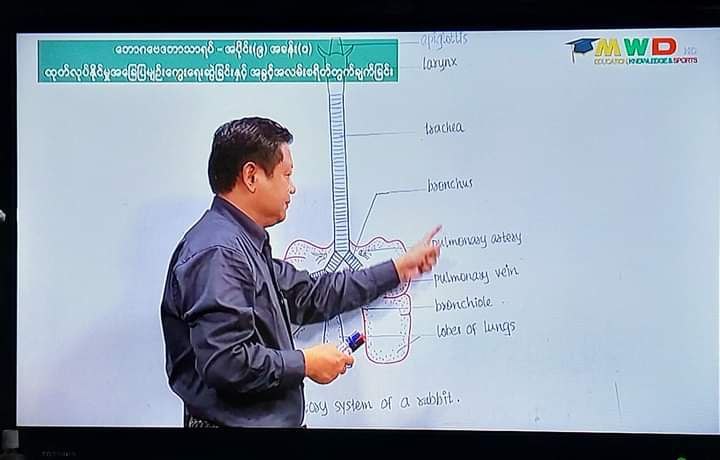 တောဂဗေဒဘာသာရပ် - အပိုင်း(၉) အခန်း(၈)
ထုတ်လုပ်နိုင်မှုအခြေပြမျဉ်းကွေးရေးဆွဲခြင်းနှင့် အခွင့်အလမ်းစရိတ်တွက်ချက်ခြင်း
MWD HD
EDUCATION, KNOWLEDGE & SPORTS
apiglottis
larynx
trachea
bronchus
pulmonary artery
pulmonary vein
bronchiole
lobes of lungs
ory system of a rabbit.